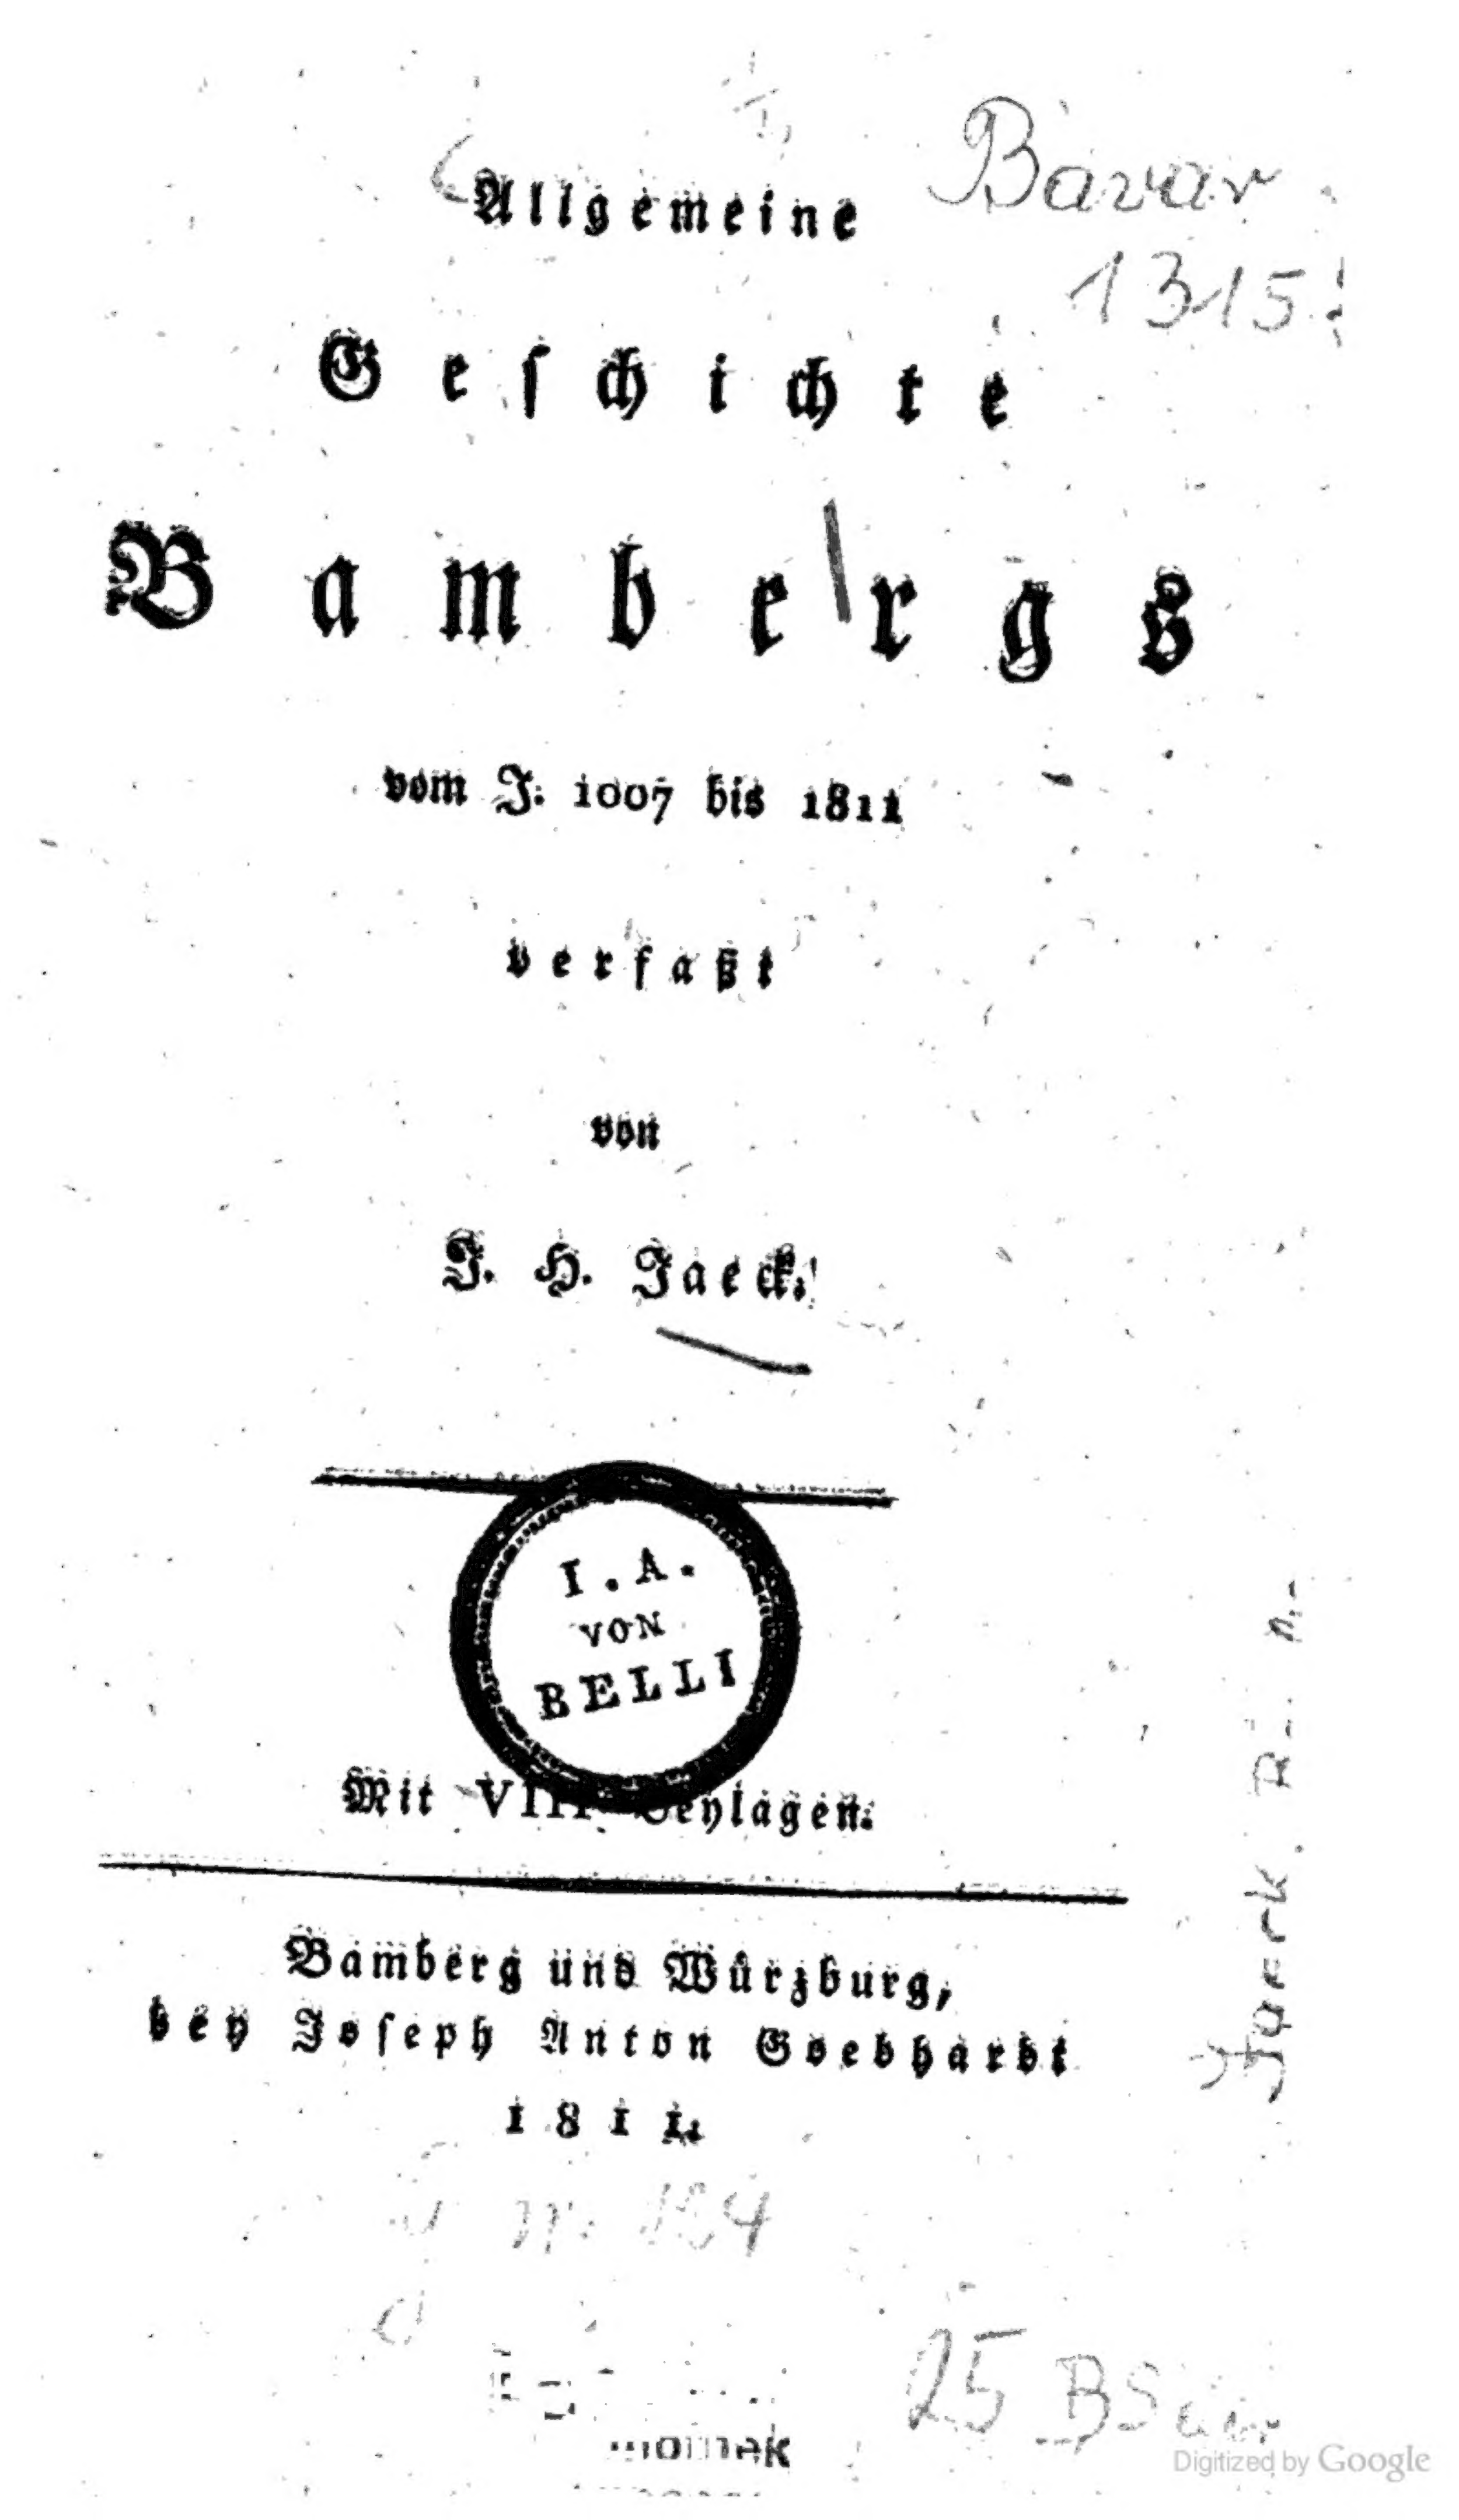 Allgemeine
Bavar
1315
Geschichte
Bambergs
vom J. 1007 bis 1811
verfaßt
von
J. H. Jaeck.
I. A.
VON
BELLI
Mit VIII Beylagen.
Bamberg und Würzburg,
bey Joseph Anton Goebhardt
1811.
Jaeck
25
Digitized by Google